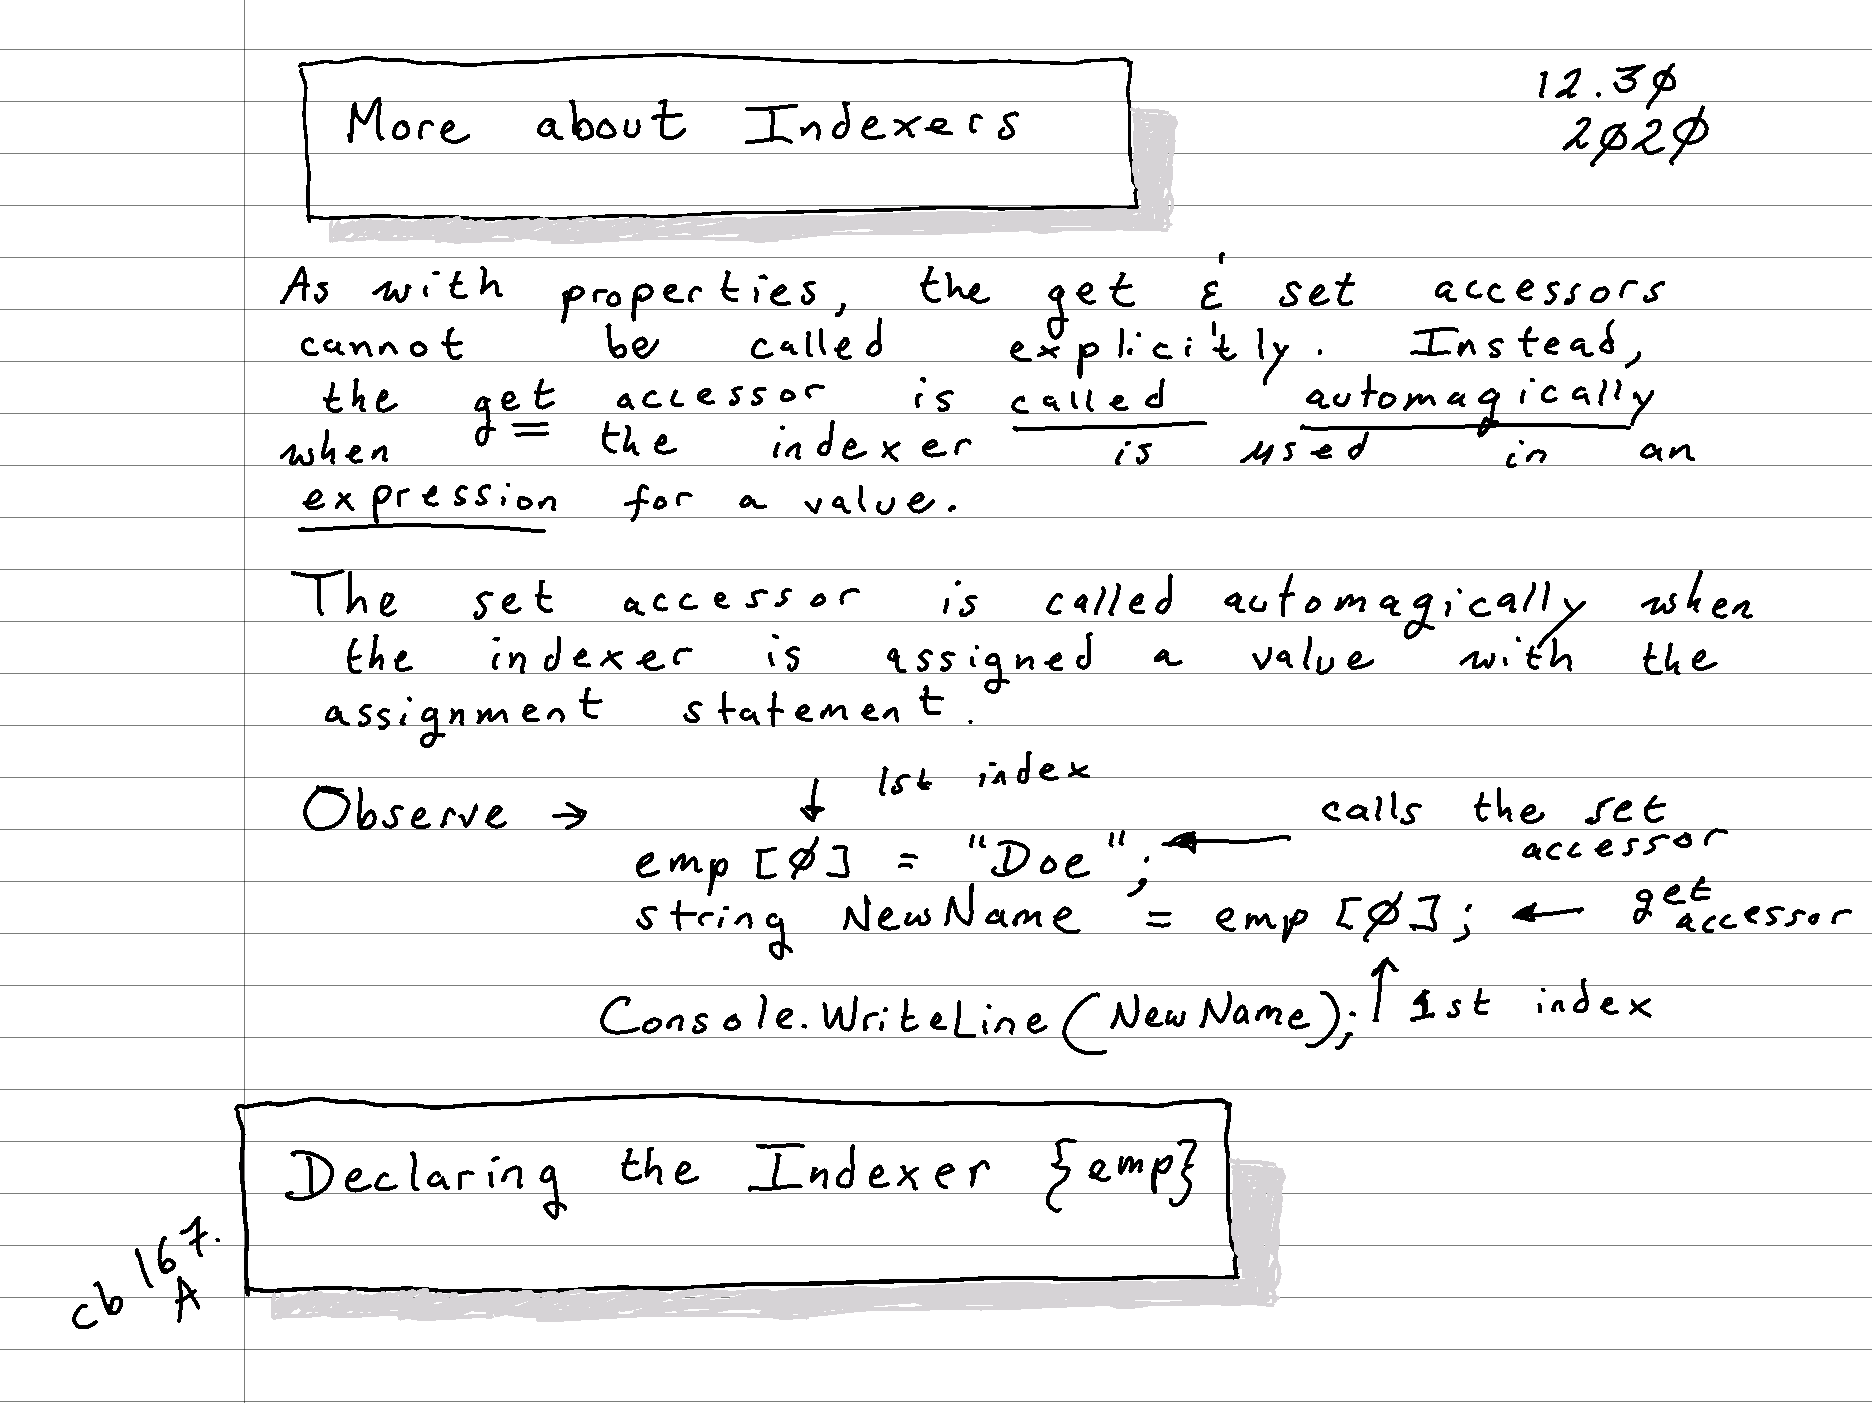 More about Indexers
12.3∅
2∅2∅
As with properties, the get & set accessors
cannot be called explicitly. Instead,
the get accessor is called automagically
when the indexer is used in an
expression for a value.
The set accessor is called automagically when
the indexer is assigned a value with the
assignment statement.
1st index
Observe → calls the set
accessor
emp [∅] = "Doe";
string NewName = emp [∅]; ← get
accessor
Console.WriteLine(NewName); 1st index
Declaring the Indexer {emp}
cb 167.
A